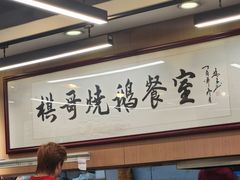 棋哥燒鵝餐室